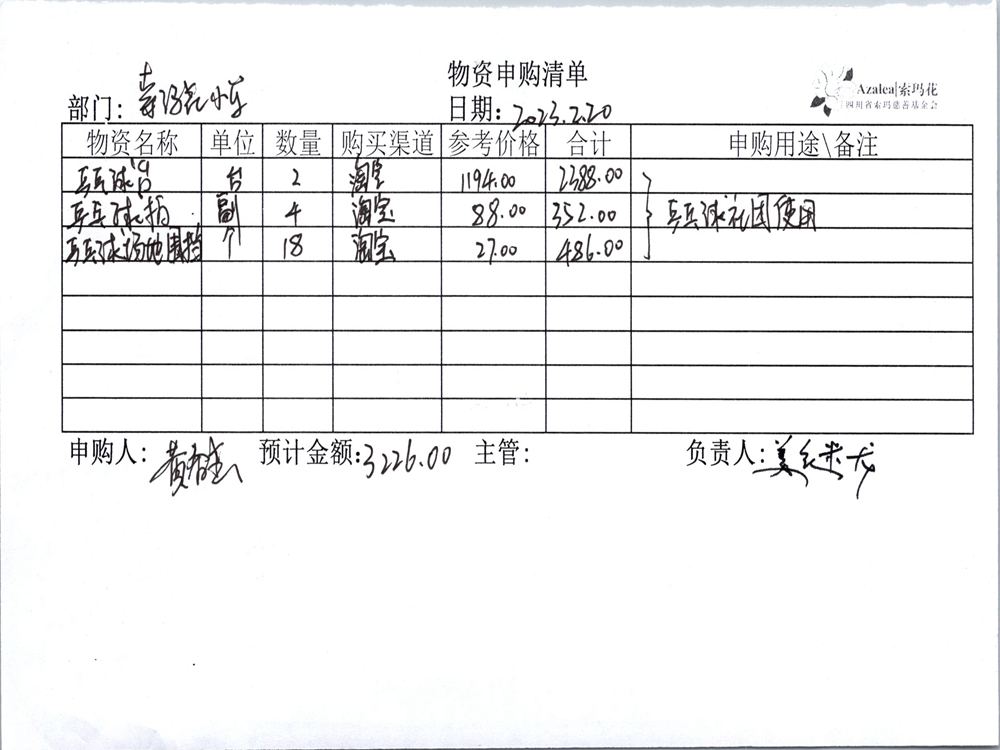 物资申购清单
Azalea|索玛花
四川省索玛慈善基金会
部门：索玛花小车
日期：2023.2.20
物资名称 单位 数量 购买渠道 参考价格 合计 申购用途\备注
乒乓球台 台 2 淘宝 1194.00 2388.00
乒乓球拍 副 4 淘宝 88.00 352.00 乒乓球社团使用
乒乓球场地围挡 个 18 淘宝 27.00 486.00
申购人： 预计金额：3226.00 主管： 负责人：